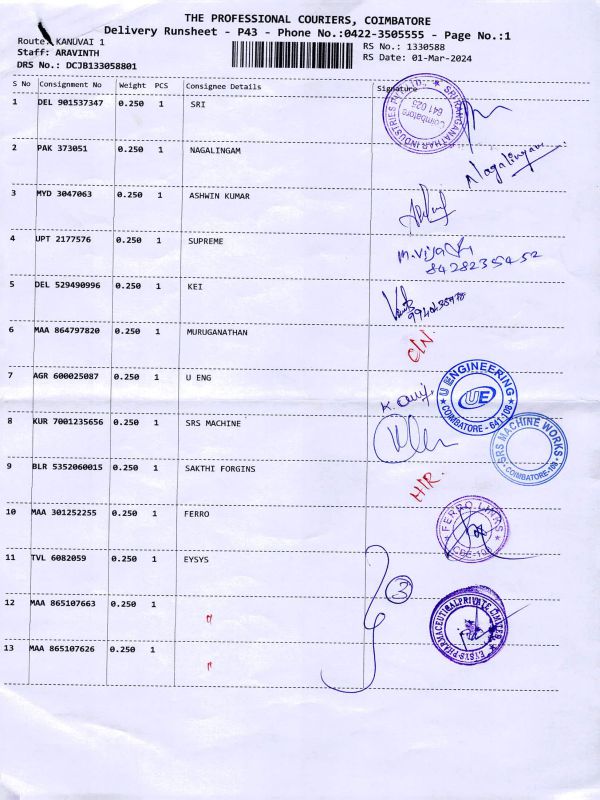 THE PROFESSIONAL COURIERS, COIMBATORE
Delivery Runsheet - P43 - Phone No.:0422-3505555 - Page No.:1
Route: KANUVAI 1
Staff: ARAVINTH
DRS No.: DCJB133058801
RS No.: 1330588
RS Date: 01-Mar-2024
S No Consignment No Weight PCS Consignee Details Signature
1 DEL 901537347 0.250 1 SRI
SRI RANGANATHAR INDUSTRIES Coimbatore 641 025
2 PAK 373051 0.250 1 NAGALINGAM
Nagalingam
3 MYD 3047063 0.250 1 ASHWIN KUMAR
4 UPT 2177576 0.250 1 SUPREME
8428235452
5 DEL 529490996 0.250 1 KEI
6 MAA 864797820 0.250 1 MURUGANATHAN
C/N.
7 AGR 600025087 0.250 1 U ENG
U ENGINEERING UE COIMBATORE - 641 108
8 KUR 7001235656 0.250 1 SRS MACHINE
SRS MACHINE WORKS COIMBATORE-108
9 BLR 5352060015 0.250 1 SAKTHI FORGINS
H/R.
10 MAA 301252255 0.250 1 FERRO
FERRO LINKS CBE-108
11 TVL 6082059 0.250 1 EYSYS
3
12 MAA 865107663 0.250 1 "
EYSYS PHARMACEUTICAL PRIVATE LIMITED
13 MAA 865107626 0.250 1 "